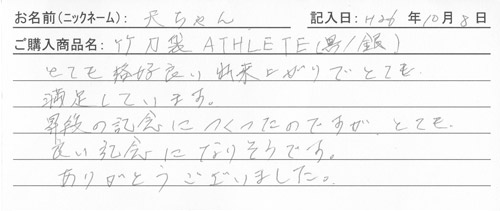 お名前（ニックネーム）：天ちゃん　記入日：H26年10月8日
ご購入商品名：竹刀袋 ATHLETE（黒/銀）
とても格好良い出来上がりでとても
満足しています。
昇段の記念につくったのですが、とても
良い記念になりそうです。
ありがとうございました。